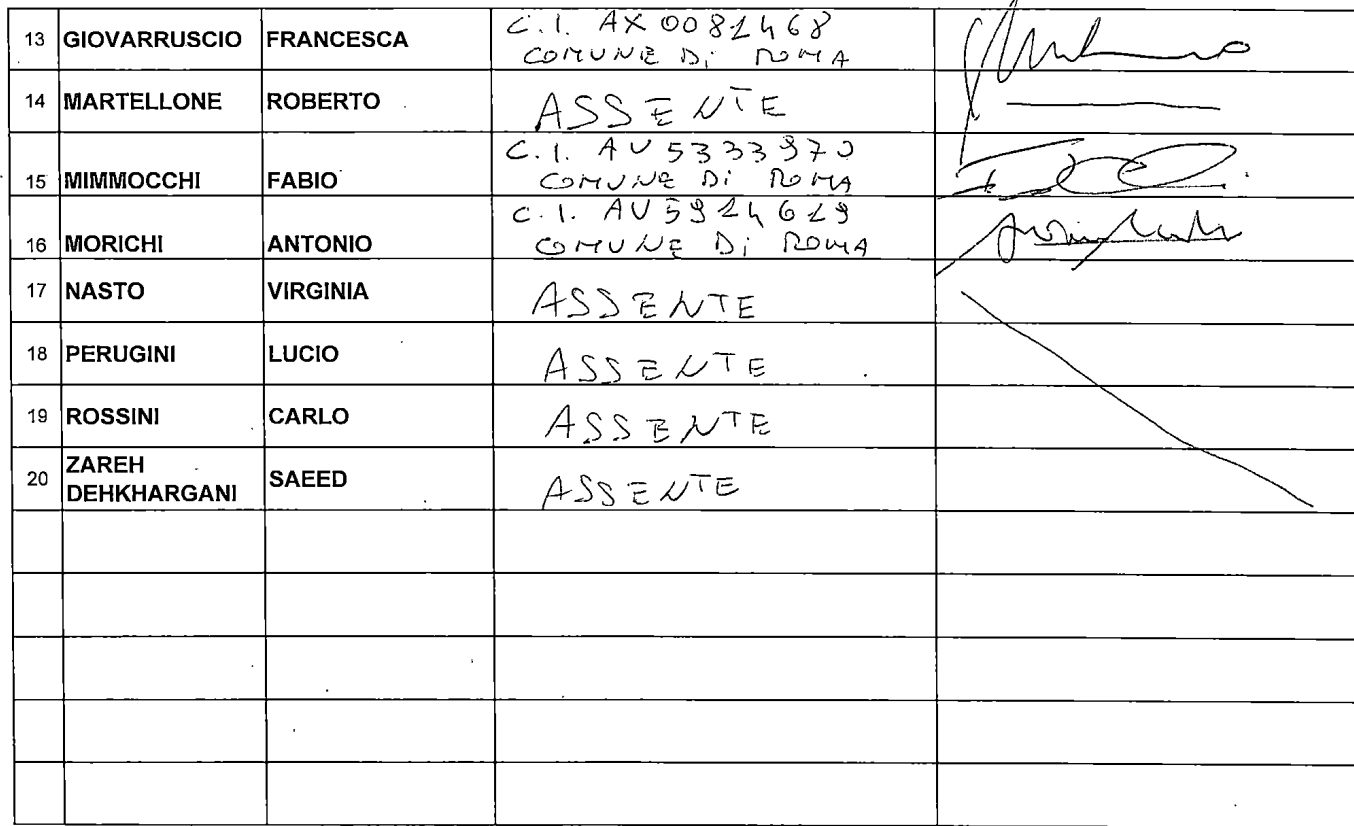 13 GIOVARRUSCIO FRANCESCA C.I. AX 0081468
COMUNE Di ROMA
14 MARTELLONE ROBERTO ASSENTE
15 MIMMOCCHI FABIO C.I. AU 5333970
COMUNE Di ROMA
16 MORICHI ANTONIO C.I. AU5914619
COMUNE Di ROMA
17 NASTO VIRGINIA ASSENTE
18 PERUGINI LUCIO ASSENTE
19 ROSSINI CARLO ASSENTE
20 ZAREH
DEHKHARGANI SAEED ASSENTE